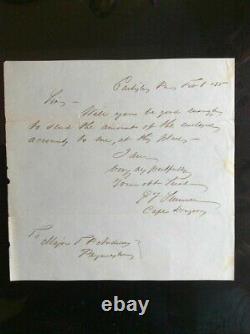 Carlisle Pa Feb 1
Sir,
Will you be good enough
to send the amount of the enclosed
account to me, at this place.
I am
very respectfully
Your obt Servt
Capt Dragoons
To
Major
Paymaster